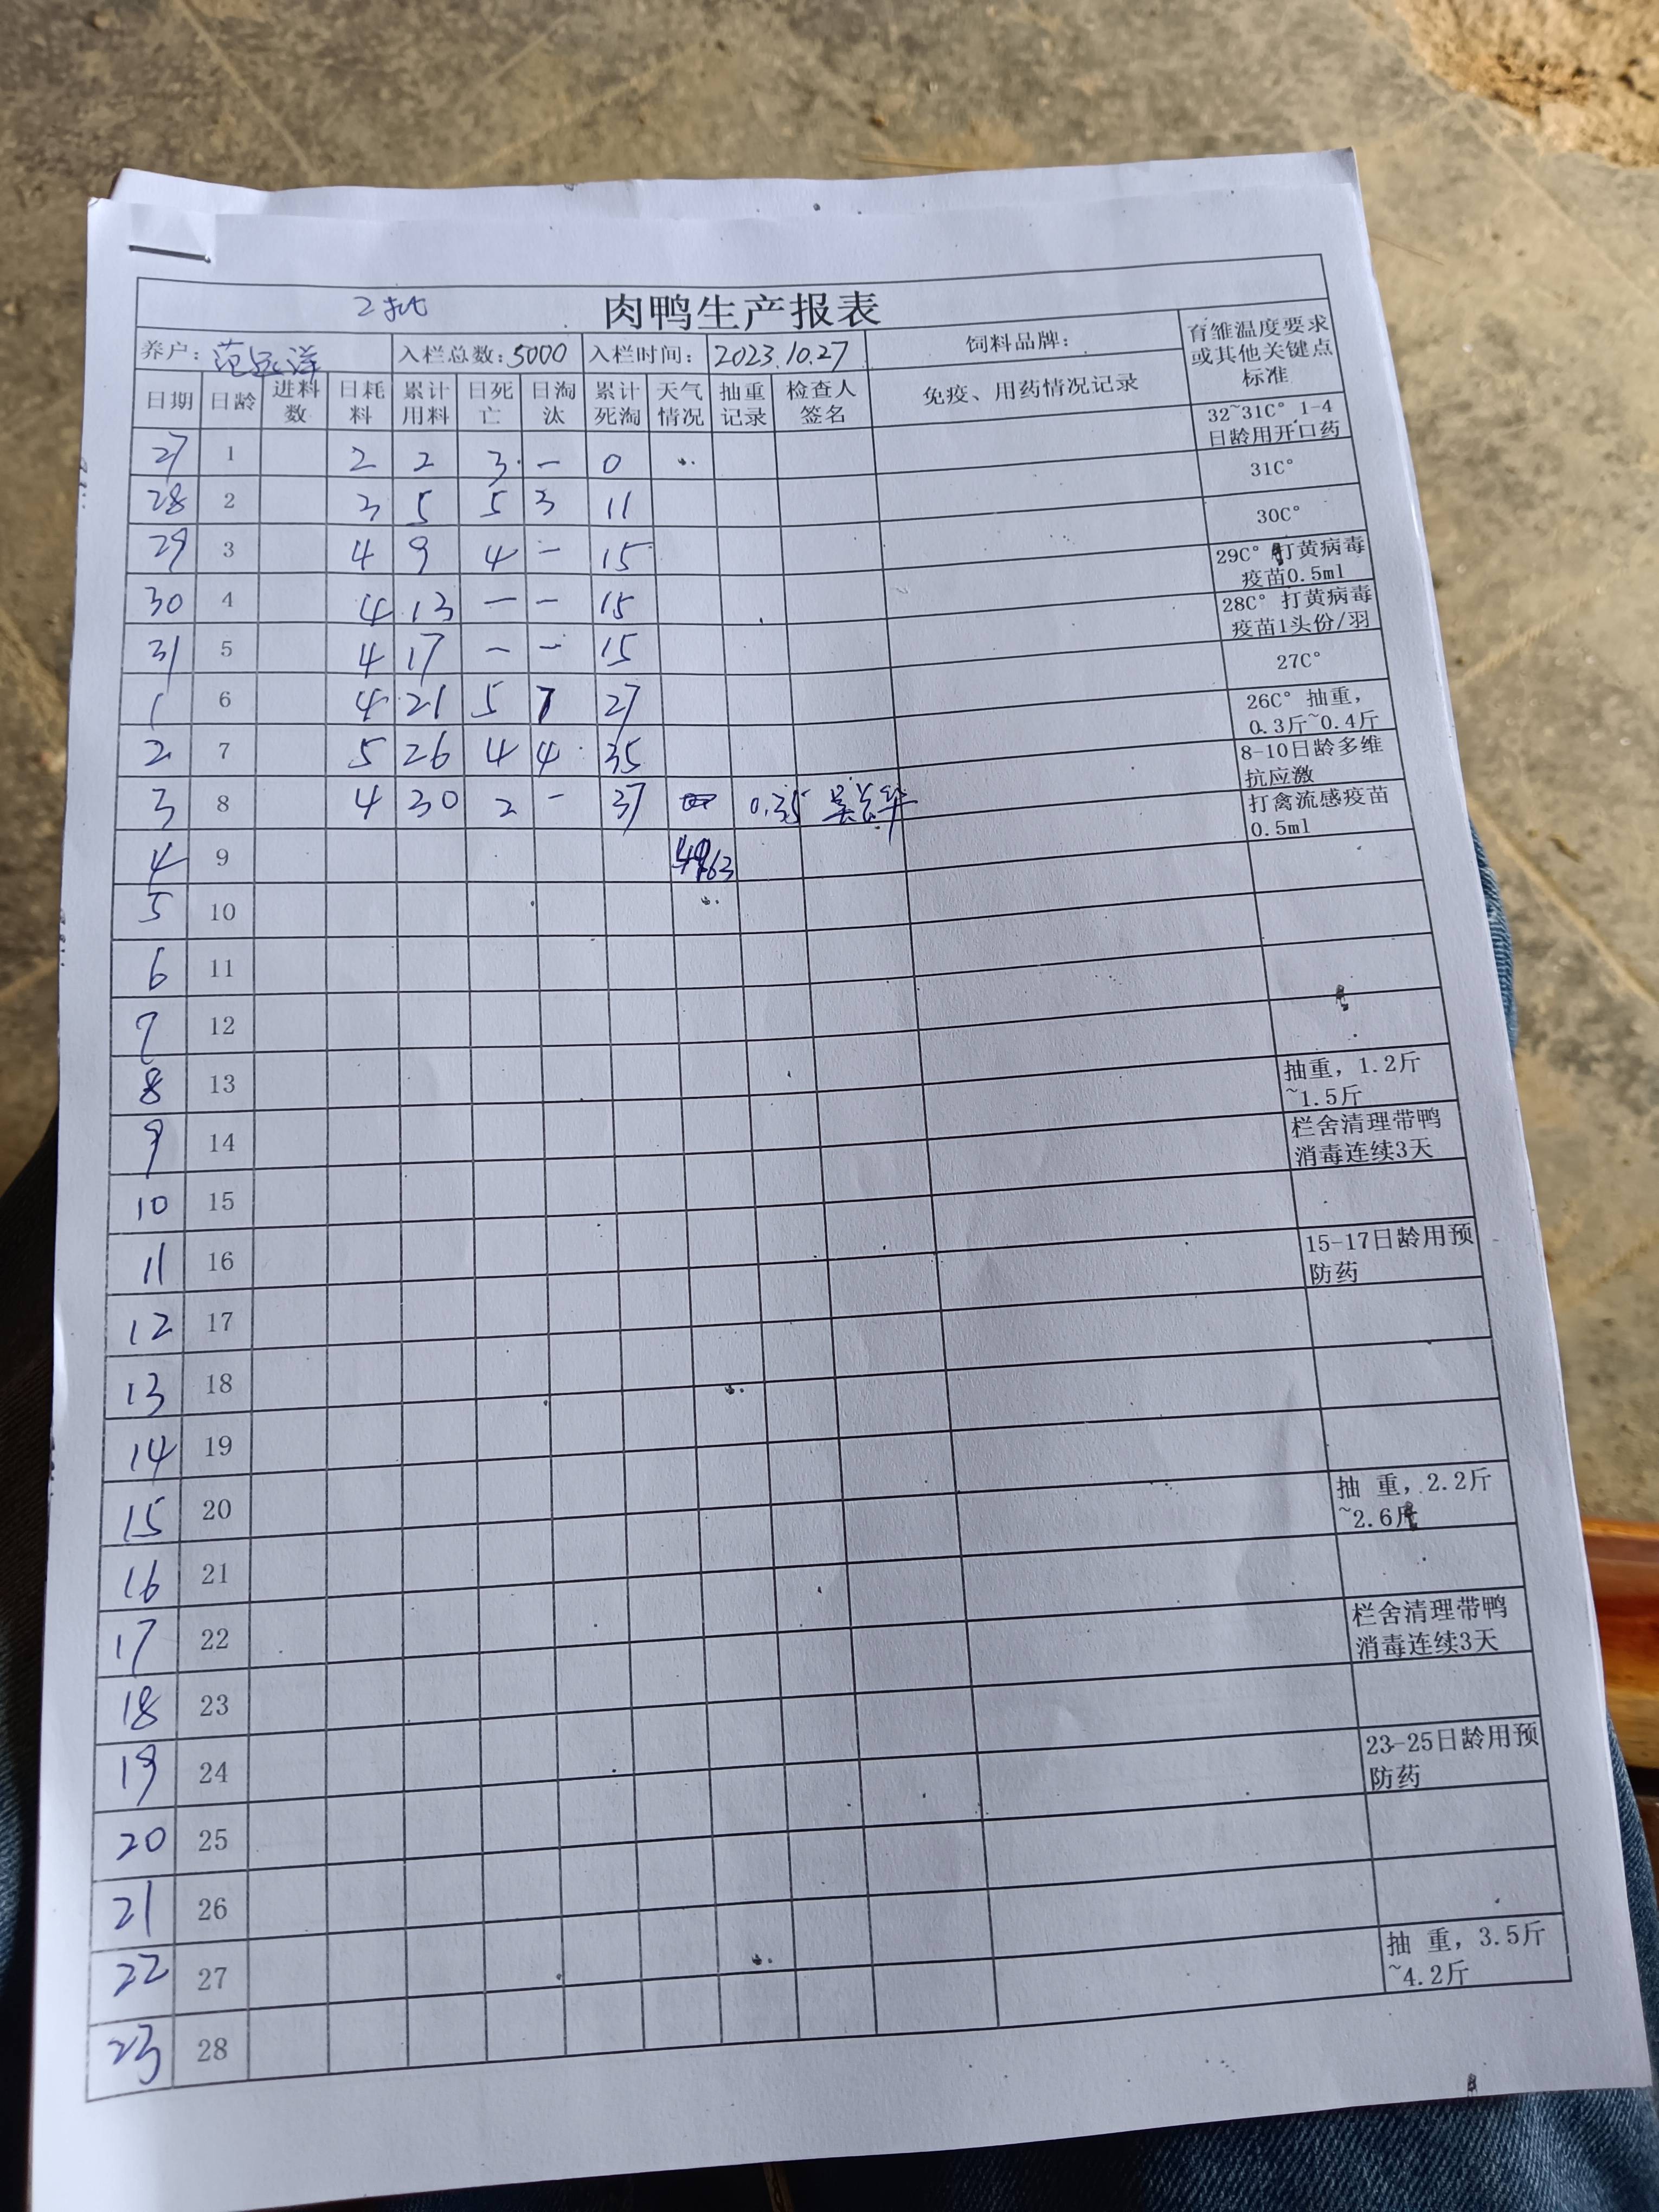 2批 肉鸭生产报表
养户： 范 洋 入栏总数：5000 入栏时间： 2023.10.27 饲料品牌： 育雏温度要求或其他关键点标准
日期 日龄 进料数 日耗料 累计用料 日死亡 日淘汰 累计死淘 天气情况 抽重记录 检查人签名 免疫、用药情况记录
32~31C° 1-4日龄用开口药
27 1 2 2 3 — 0 31C°
28 2 3 5 5 3 11 30C°
29 3 4 9 4 — 15 29C° 打黄病毒疫苗0.5ml
30 4 4 13 — — 15 28C° 打黄病毒疫苗1头份/羽
31 5 4 17 — — 15 27C°
1 6 4 21 5 7 27 26C° 抽重，0.3斤~0.4斤
2 7 5 26 4 4 35 8-10日龄多维抗应激
3 8 4 30 2 — 37 0.35 打禽流感疫苗0.5ml
4 9 4963
5 10
6 11
7 12
8 13 抽重，1.2斤~1.5斤
9 14 栏舍清理带鸭消毒连续3天
10 15
11 16 15-17日龄用预防药
12 17
13 18
14 19
15 20 抽 重，2.2斤~2.6斤
16 21
17 22 栏舍清理带鸭消毒连续3天
18 23
19 24 23-25日龄用预防药
20 25
21 26
22 27 抽 重，3.5斤~4.2斤
23 28